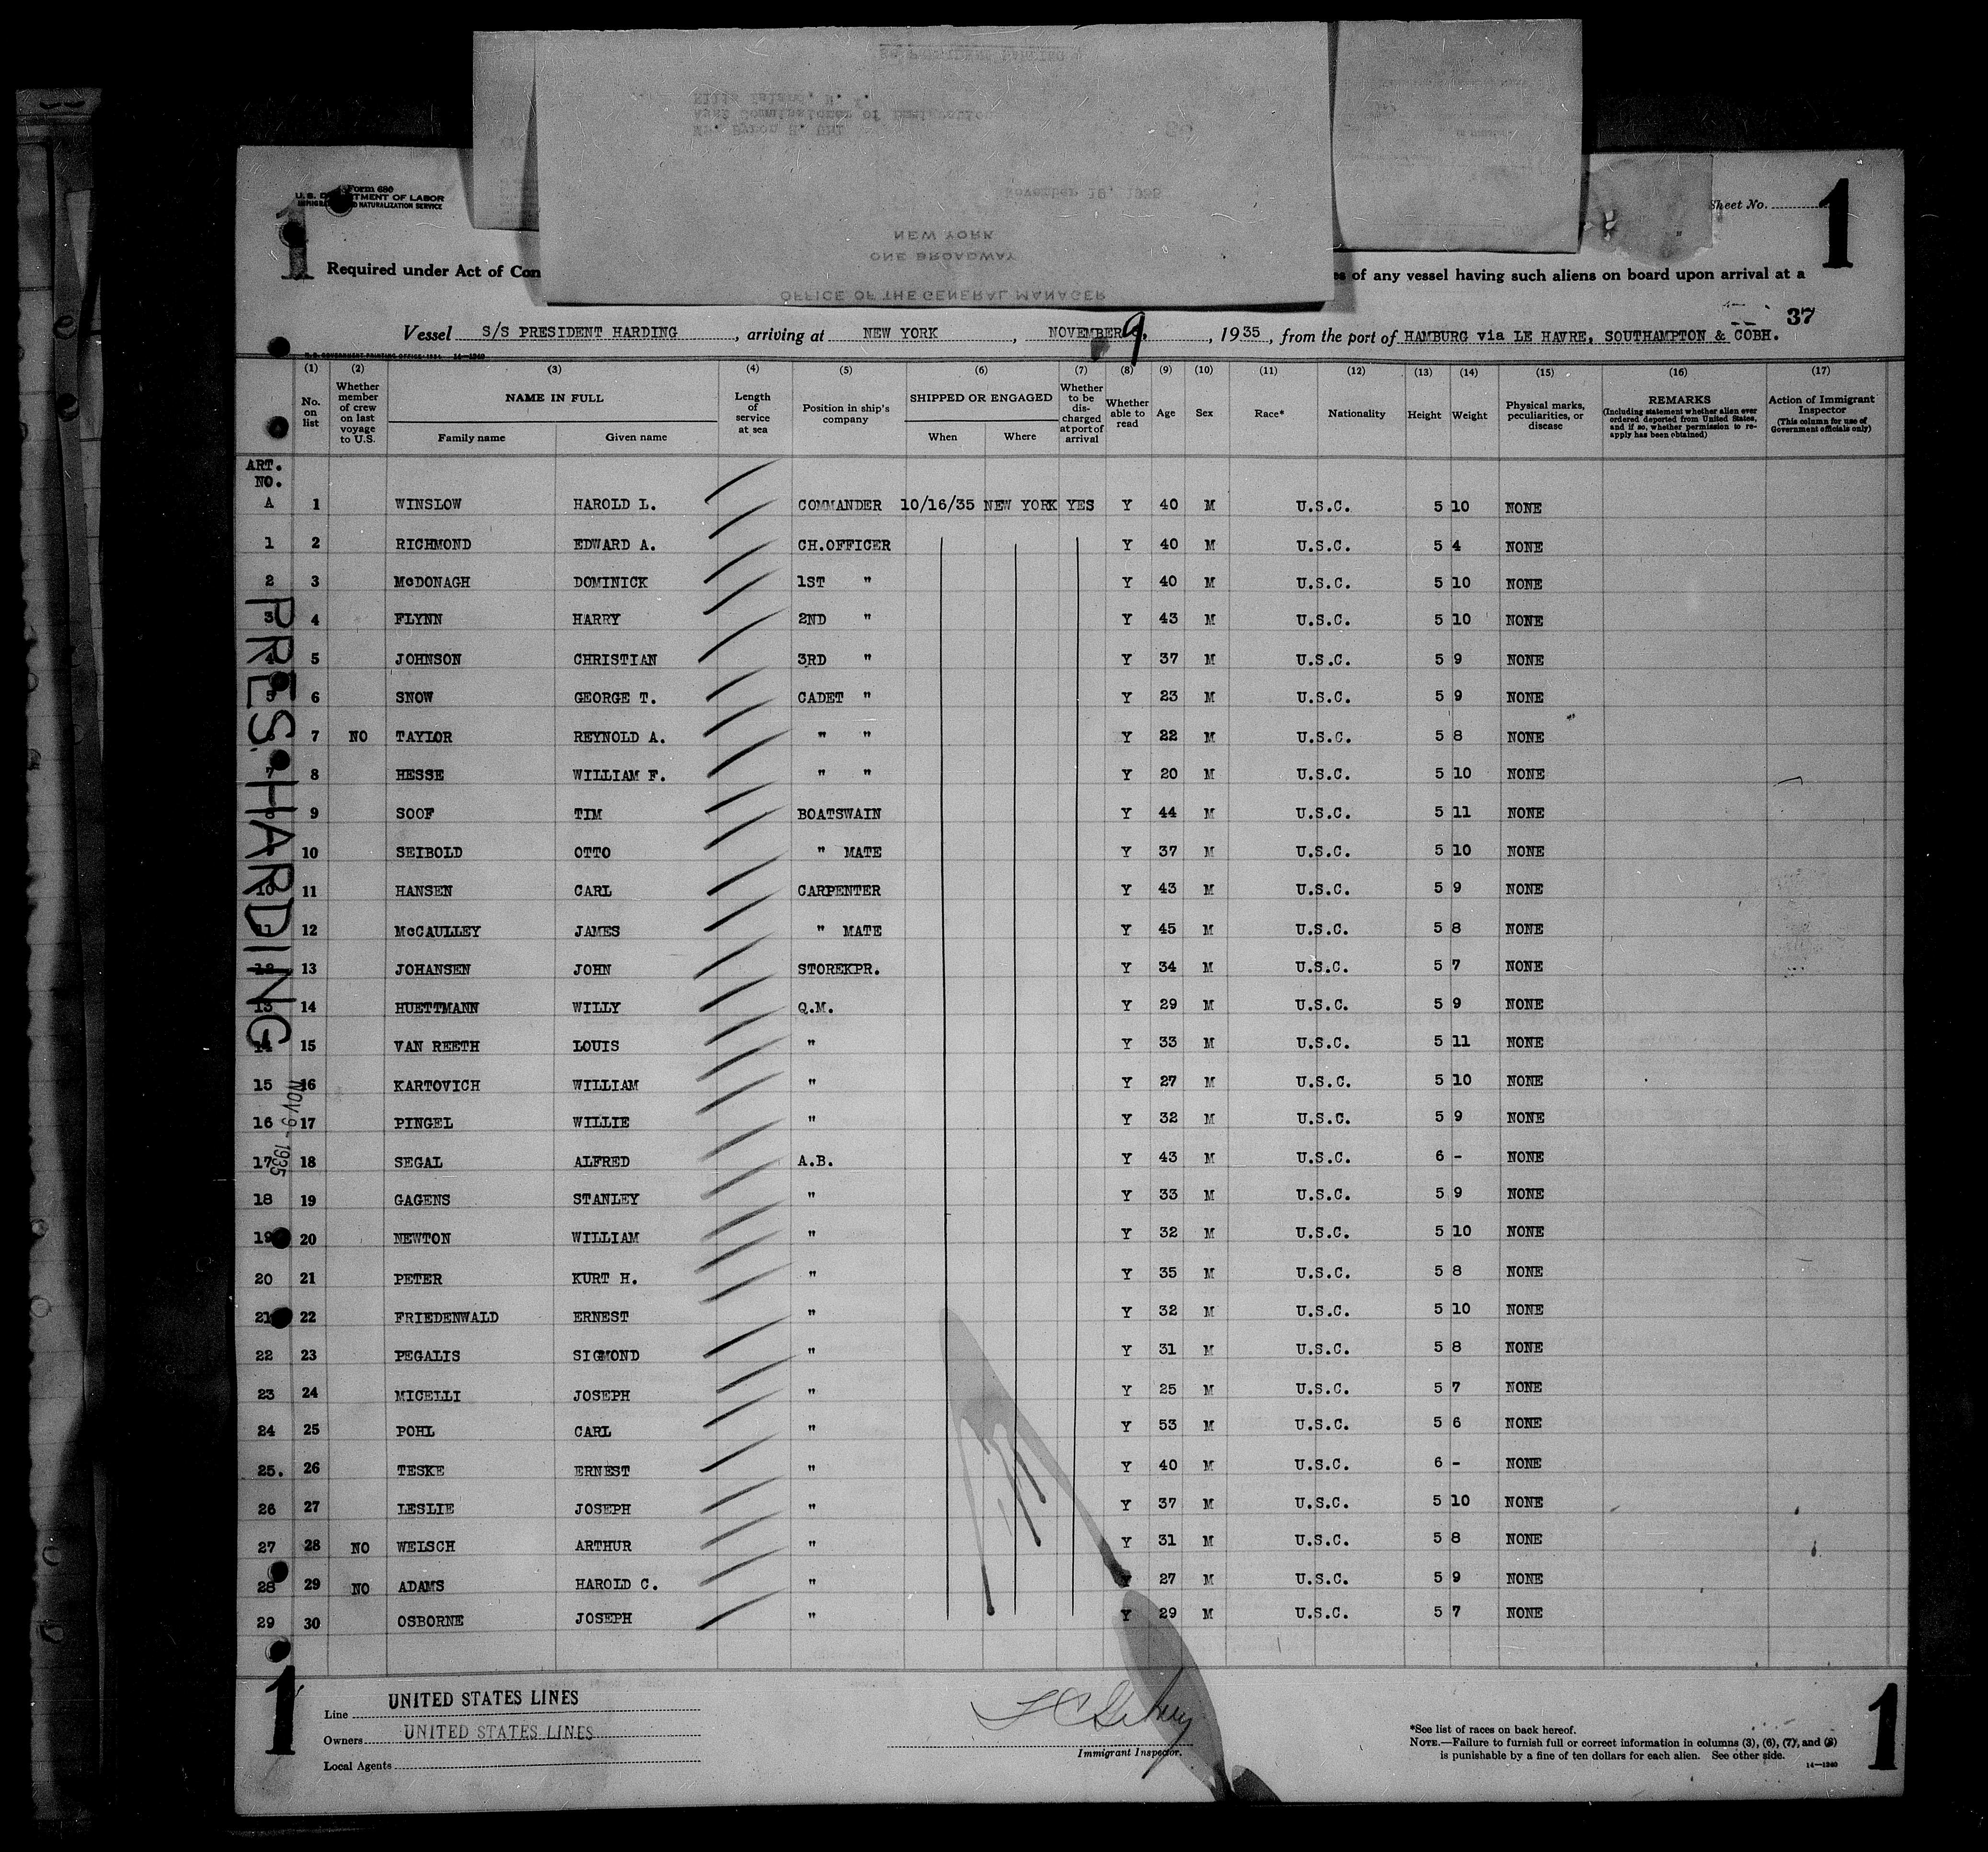 Form 680
U. S. DEPARTMENT OF LABOR
IMMIGRATION AND NATURALIZATION SERVICE
1
Sheet No.
1
SS PRESIDENT HARDING
Ellis Island, N. Y.
Asst Commissioner of Immigration
Mr. Byron H. Uhl
November 19, 1935
NEW YORK
ONE BROADWAY
OFFICE OF THE GENERAL MANAGER
Required under Act of Con
es of any vessel having such aliens on board upon arrival at a
37
Vessel S/S PRESIDENT HARDING , arriving at NEW YORK , NOVEMBER 9, , 1935, from the port of HAMBURG via LE HAVRE, SOUTHAMPTON & COBH.
U. S. GOVERNMENT PRINTING OFFICE: 1934 14—1240
(1) (2) (3) (4) (5) (6) (7) (8) (9) (10) (11) (12) (13) (14) (15) (16) (17)
No. on list
Whether member of crew on last voyage to U.S.
NAME IN FULL
Family name Given name
Length of service at sea
Position in ship's company
SHIPPED OR ENGAGED
When Where
Whether to be discharged at port of arrival
Whether able to read
Age Sex Race* Nationality Height Weight
Physical marks, peculiarities, or disease
REMARKS
(Including statement whether alien ever ordered deported from United States, and if so, whether permission to re-apply has been obtained)
Action of Immigrant Inspector
(This column for use of Government officials only)
ART. NO.
A 1 WINSLOW HAROLD L. COMMANDER 10/16/35 NEW YORK YES Y 40 M U.S.C. 5 10 NONE
1 2 RICHMOND EDWARD A. CH.OFFICER Y 40 M U.S.C. 5 4 NONE
2 3 McDONAGH DOMINICK 1ST " Y 40 M U.S.C. 5 10 NONE
3 4 FLYNN HARRY 2ND " Y 43 M U.S.C. 5 10 NONE
4 5 JOHNSON CHRISTIAN 3RD " Y 37 M U.S.C. 5 9 NONE
5 6 SNOW GEORGE T. CADET " Y 23 M U.S.C. 5 9 NONE
7 NO TAYLOR REYNOLD A. " " Y 22 M U.S.C. 5 8 NONE
7 8 HESSE WILLIAM F. " " Y 20 M U.S.C. 5 10 NONE
9 SOOF TIM BOATSWAIN Y 44 M U.S.C. 5 11 NONE
10 SEIBOLD OTTO " MATE Y 37 M U.S.C. 5 10 NONE
10 11 HANSEN CARL CARPENTER Y 43 M U.S.C. 5 9 NONE
11 12 McCAULLEY JAMES " MATE Y 45 M U.S.C. 5 8 NONE
12 13 JOHANSEN JOHN STOREKPR. Y 34 M U.S.C. 5 7 NONE
13 14 HUETTMANN WILLY Q.M. Y 29 M U.S.C. 5 9 NONE
14 15 VAN REETH LOUIS " Y 33 M U.S.C. 5 11 NONE
15 16 KARTOVICH WILLIAM " Y 27 M U.S.C. 5 10 NONE
16 17 PINGEL WILLIE " Y 32 M U.S.C. 5 9 NONE
17 18 SEGAL ALFRED A.B. Y 43 M U.S.C. 6 - NONE
18 19 GAGENS STANLEY " Y 33 M U.S.C. 5 9 NONE
19 20 NEWTON WILLIAM " Y 32 M U.S.C. 5 10 NONE
20 21 PETER KURT H. " Y 35 M U.S.C. 5 8 NONE
21 22 FRIEDENWALD ERNEST " Y 32 M U.S.C. 5 10 NONE
22 23 PEGALIS SIGMOND " Y 31 M U.S.C. 5 8 NONE
23 24 MICELLI JOSEPH " Y 25 M U.S.C. 5 7 NONE
24 25 POHL CARL " Y 53 M U.S.C. 5 6 NONE
25. 26 TESKE ERNEST " Y 40 M U.S.C. 6 - NONE
26 27 LESLIE JOSEPH " Y 37 M U.S.C. 5 10 NONE
27 28 NO WELSCH ARTHUR " Y 31 M U.S.C. 5 8 NONE
28 29 NO ADAMS HAROLD C. " Y 27 M U.S.C. 5 9 NONE
29 30 OSBORNE JOSEPH " Y 29 M U.S.C. 5 7 NONE
PRES. HARDING
NOV 9 - 1935
1
Line UNITED STATES LINES
Owners UNITED STATES LINES
Local Agents
Immigrant Inspector.
*See list of races on back hereof.
NOTE.—Failure to furnish full or correct information in columns (3), (6), (7), and (8)
is punishable by a fine of ten dollars for each alien. See other side.
14—1240
1